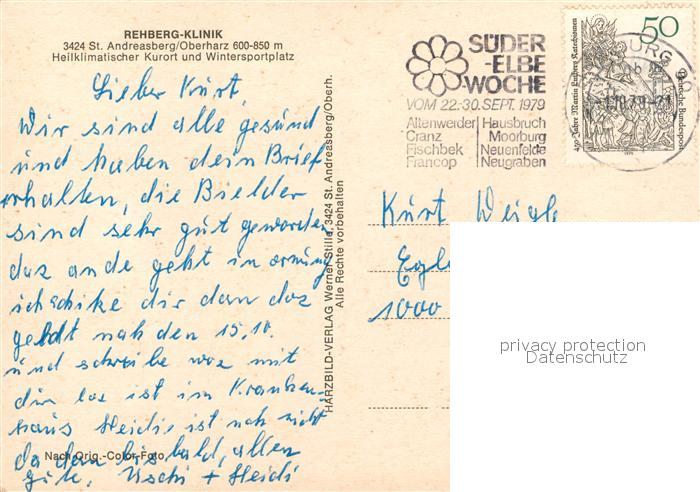 REHBERG-KLINIK
3424 St. Andreasberg/Oberharz 600-850 m
Heilklimatischer Kurort und Wintersportplatz
Lieber Kurt,
Wir sind alle gesund
und haben dein Brief
erhalten, die Bielder
sind sehr gut geworden
das ande geht in ornung
ich schike dir dan das
geldt nah den 15.10.
und schreibe was mit
dir los ist im Kranken-
haus Heidis ist noh nicht
da dan bis bald, allen
gute, Uschi + Heidi
Nach Orig.-Color-Foto
HARZBILD-VERLAG Werner Stille, 3424 St. Andreasberg/Oberh.
Alle Rechte vorbehalten
SÜDER
-ELBE
WOCHE
VOM 22.-30. SEPT. 1979
Altenwerder Hausbruch
Cranz Moorburg
Fischbek Neuenfelde
Francop Neugraben
50
450 Jahre Martin Luthers Katechismen
Deutsche Bundespost
Kurt Weigl
Egl
1000
privacy protection
Datenschutz